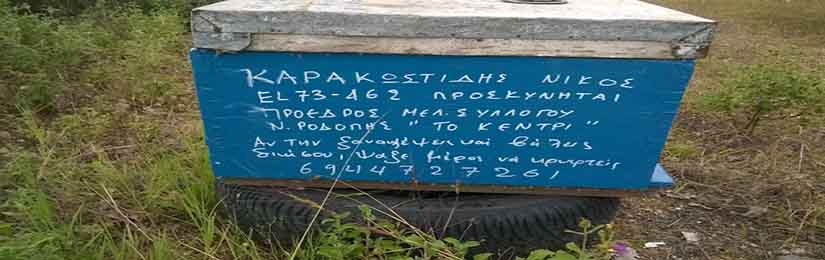 ΚΑΡΑΚΩΣΤΙΔΗΣ ΝΙΚΟΣ
EL 73-462 ΠΡΟΣΚΥΝΗΤΑΙ
ΠΡΟΕΔΡΟΣ ΜΕΛ. ΣΥΛΛΟΓΟΥ
Ν. ΡΟΔΟΠΗΣ "ΤΟ ΚΕΝΤΡΙ"
Αν την ξανακλέψεις και βάλεις
δικά σου, ψάξε μέρος να κρυφτείς
6944727261